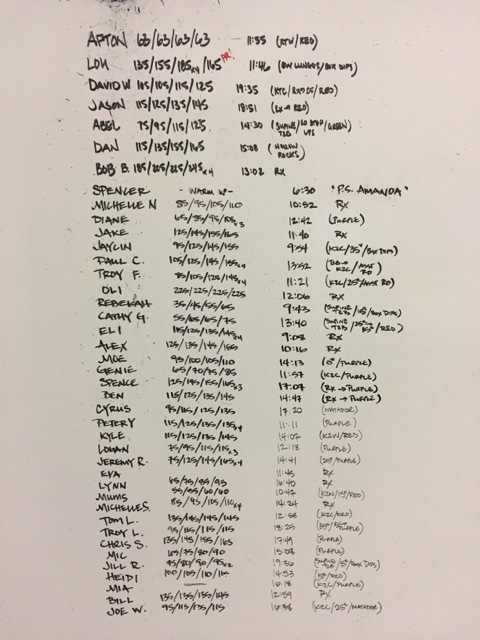 APTON 63/63/63/63 11:55 (RTW/RED)
LOU 135/155/185x4/165 PR! 11:46 (BW LUNGES/BOX DIPS)
DAVID W 105/105/115/125 19:35 (KTC/RED)
JASON 115/125/135/145 18:51 (RX → RED)
ABEL 75/95/115/125 14:30 (GREEN)
DAN 115/135/155/165 15:08 (HOLLOW ROCKS)
BOB B. 185/205/225/245x4 13:02 RX
SPENCER - WARM UP - 6:30 "P.S. AMANDA"
MICHELLE N 85/95/105/110 10:52 RX
DIANE 65/75/95/105x3 12:42 (PURPLE)
JAKE 125/145/155/165 11:40 RX
JAYLIN 95/125/145/155 9:54 (K2C/35#/BOX DIPS)
PAUL C. 105/125/145/155x4 13:52
TROY F. 85/105/125/145x4 11:21 (K2C/25#/ASST RD)
OLI 225/225/225/225 12:06 RX
REBEKAH 35/45/55/65 9:43
CATHY G. 55/65/65/75 13:40
ELI 115/125/135/145x4 9:08 RX
ALEX 125/135/145/155 10:16 RX
MOE 95/100/105/110 14:13 (PURPLE)
GENIE 65/70/75/85 11:57 (K2C/PURPLE)
SPENCE 125/145/155/165x3 17:07 (RX → PURPLE)
BEN 115/125/135/145 14:47 (RX → PURPLE)
CYRUS 95/115/125/135 17:20 (MATADOR)
PETER Y 115/125/135/135x4 11:11 (PURPLE)
KYLE 115/125/135/145 14:07
LOGAN 75/95/115/115x3 12:18 (PURPLE)
JEREMY R. 75/125/145/165x4 14:41 (25#/PURPLE)
EVA 11:45 RX
LYNN 65/75/85/95 16:40 RX
MUMS 55/55/60/60 10:42
MICHELLE S. 85/95/105/110x4 14:24 RX
TOM L. 135/145/145/145 12:58 (K2C/RED)
TROY L. 95/115/115/115 18:25
CHRIS S. 135/145/155/165 17:49 (PURPLE)
MIC 65/75/80/90 15:08 (PURPLE)
JILL R. 75/80/90/95x2 19:36
HEIDI 100/105/110/115 14:53
MIA 16:18 (K2C/PURPLE)
BILL 135/135/135/145 12:59 RX
JOE W. 95/115/135/115 16:36 (K2C/25#/MATADOR)